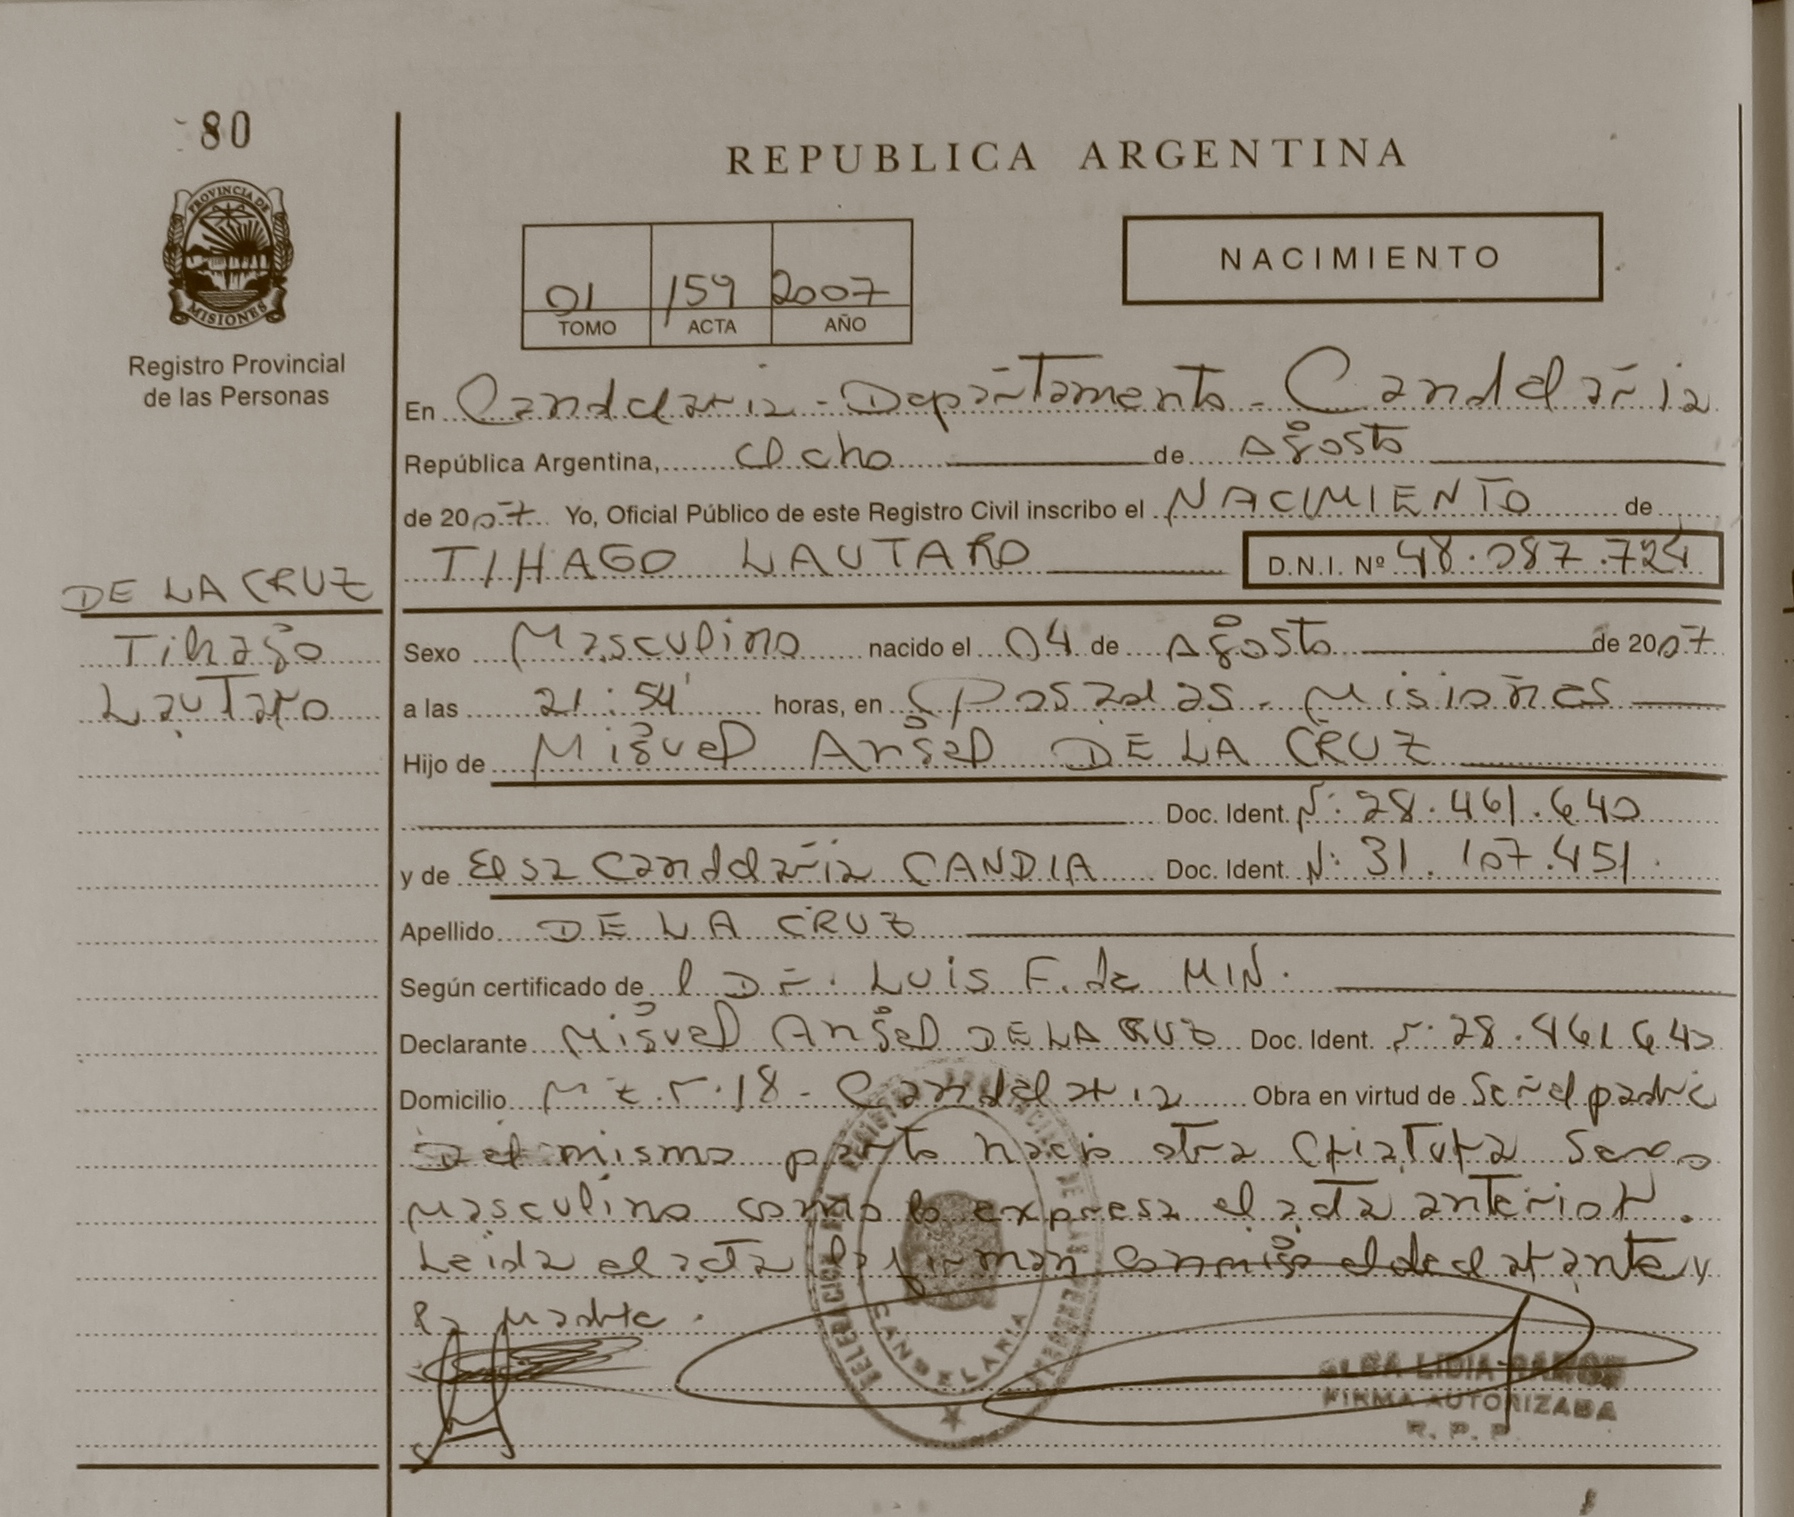 80
REPUBLICA ARGENTINA
PROVINCIA DE
MISIONES
Registro Provincial
de las Personas
01 159 2007
TOMO ACTA AÑO
NACIMIENTO
En Candelaria - Departamento - Candelaria
República Argentina, Ocho de Agosto
de 2007 Yo, Oficial Público de este Registro Civil inscribo el NACIMIENTO de
TIHAGO LAUTARO D.N.I. Nº 48.087.724
DE LA CRUZ
Tihago
Lautaro
Sexo Masculino nacido el 04 de Agosto de 2007
a las 21:54' horas, en Posadas - Misiones
Hijo de Miguel Angel DE LA CRUZ
Doc. Ident. Nº: 28.461.640
y de Elsa Candelaria CANDIA Doc. Ident. Nº: 31.107.451.
Apellido DE LA CRUZ
Según certificado de l Dr. Luis F. de MIN.
Declarante Miguel Angel DE LA CRUZ Doc. Ident. Nº: 28.461.640
Domicilio Mz. Nº 18 - Candelaria Obra en virtud de Ser el padre
Del mismo parto nacio otra Criatura Sexo
Masculino como lo expresa el acta anterior.
Leida el acta la firman conmigo el declarante y
la Madre.
CANDELARIA
ALBA LIDIA RAMOS
FIRMA AUTORIZADA
R. P. P.